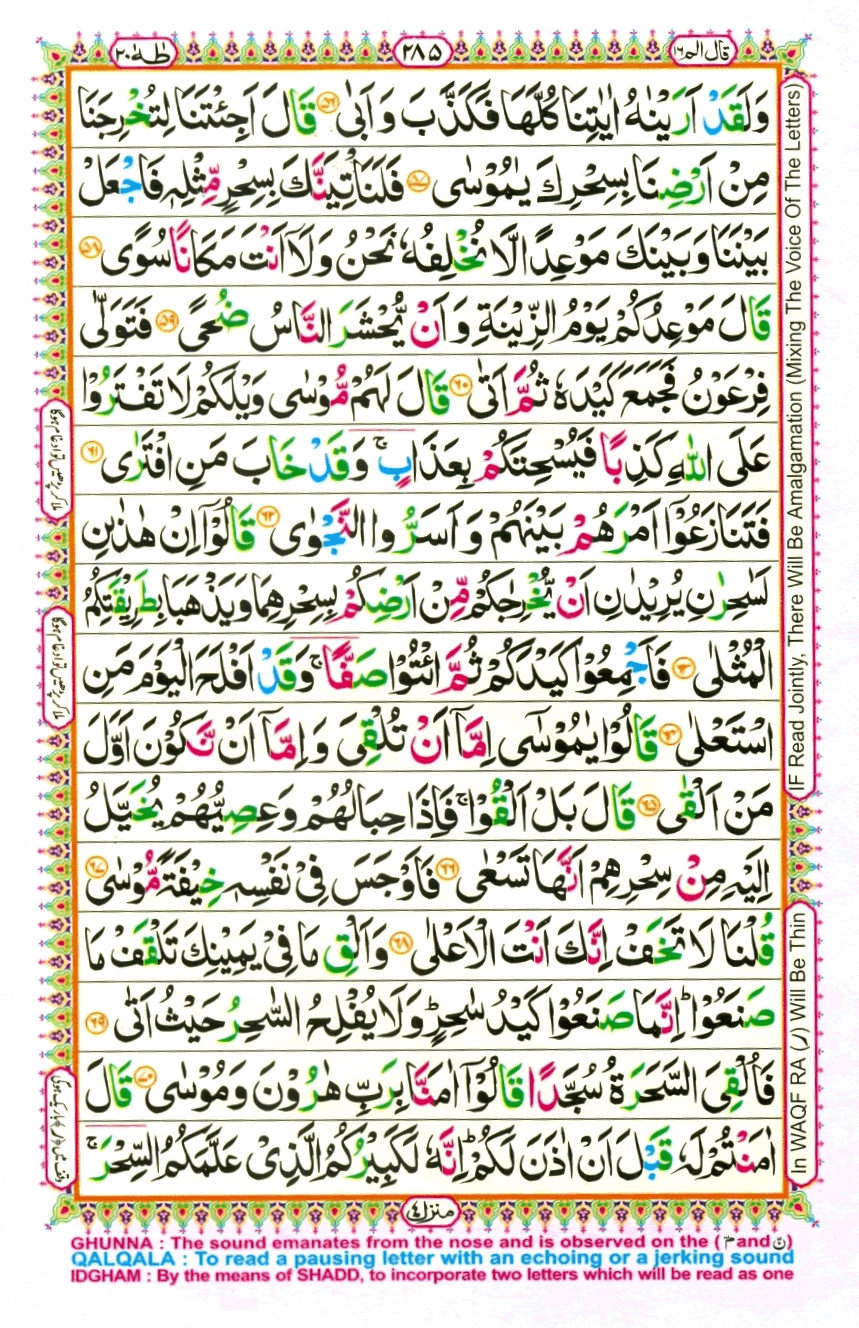 طٰهٰ ٢٠
٢٨٥
قال الم ١٦
وَلَقَدْ اَرَيْنٰهُ اٰيٰتِنَا كُلَّهَا فَكَذَّبَ وَ اَبٰى ۝٥٦ قَالَ اَجِئْتَنَا لِتُخْرِجَنَا
مِنْ اَرْضِنَا بِسِحْرِكَ يٰمُوْسٰى ۝٥٧ فَلَنَاْتِيَنَّكَ بِسِحْرٍ مِّثْلِهٖ فَاجْعَلْ
بَيْنَنَا وَبَيْنَكَ مَوْعِدًا لَّا نُخْلِفُهٗ نَحْنُ وَلَاۤ اَنْتَ مَكَانًا سُوًى ۝٥٨
قَالَ مَوْعِدُكُمْ يَوْمُ الزِّيْنَةِ وَ اَنْ يُّحْشَرَ النَّاسُ ضُحًى ۝٥٩ فَتَوَلّٰى
فِرْعَوْنُ فَجَمَعَ كَيْدَهٗ ثُمَّ اَتٰى ۝٦٠ قَالَ لَهُمْ مُّوْسٰى وَيْلَكُمْ لَا تَفْتَرُوْا
عَلَى اللّٰهِ كَذِبًا فَيُسْحِتَكُمْ بِعَذَابٍ ۚ وَقَدْ خَابَ مَنِ افْتَرٰى ۝٦١
فَتَنَازَعُوْۤا اَمْرَهُمْ بَيْنَهُمْ وَ اَسَرُّوا النَّجْوٰى ۝٦٢ قَالُوْۤا اِنْ هٰذٰىنِ
لَسٰحِرٰنِ يُرِيْدٰنِ اَنْ يُّخْرِجٰكُمْ مِّنْ اَرْضِكُمْ بِسِحْرِهِمَا وَيَذْهَبَا بِطَرِيْقَتِكُمُ
الْمُثْلٰى ۝٦٣ فَاَجْمِعُوْا كَيْدَكُمْ ثُمَّ ائْتُوْا صَفًّا ۚ وَقَدْ اَفْلَحَ الْيَوْمَ مَنِ
اسْتَعْلٰى ۝٦٤ قَالُوْا يٰمُوْسٰۤى اِمَّاۤ اَنْ تُلْقِىَ وَ اِمَّاۤ اَنْ نَّكُوْنَ اَوَّلَ
مَنْ اَلْقٰى ۝٦٥ قَالَ بَلْ اَلْقُوْا ۚ فَاِذَا حِبَالُهُمْ وَعِصِيُّهُمْ يُخَيَّلُ
اِلَيْهِ مِنْ سِحْرِهِمْ اَنَّهَا تَسْعٰى ۝٦٦ فَاَوْجَسَ فِىْ نَفْسِهٖ خِيْفَةً مُّوْسٰى ۝٦٧
قُلْنَا لَا تَخَفْ اِنَّكَ اَنْتَ الْاَعْلٰى ۝٦٨ وَاَلْقِ مَا فِىْ يَمِيْنِكَ تَلْقَفْ مَا
صَنَعُوْا ؕ اِنَّمَا صَنَعُوْا كَيْدُ سٰحِرٍ ؕ وَلَا يُفْلِحُ السّٰحِرُ حَيْثُ اَتٰى ۝٦٩
فَاُلْقِىَ السَّحَرَةُ سُجَّدًا قَالُوْۤا اٰمَنَّا بِرَبِّ هٰرُوْنَ وَمُوْسٰى ۝٧٠ قَالَ
اٰمَنْتُمْ لَهٗ قَبْلَ اَنْ اٰذَنَ لَكُمْ ؕ اِنَّهٗ لَكَبِيْرُكُمُ الَّذِىْ عَلَّمَكُمُ السِّحْرَ ۚ
IF Read Jointly, There Will Be Amalgamation (Mixing The Voice Of The Letters)
In WAQF RA (ر) Will Be Thin
منزل ٤
GHUNNA : The sound emanates from the nose and is observed on the ( مّ and نّ )
QALQALA : To read a pausing letter with an echoing or a jerking sound
IDGHAM : By the means of SHADD, to incorporate two letters which will be read as one